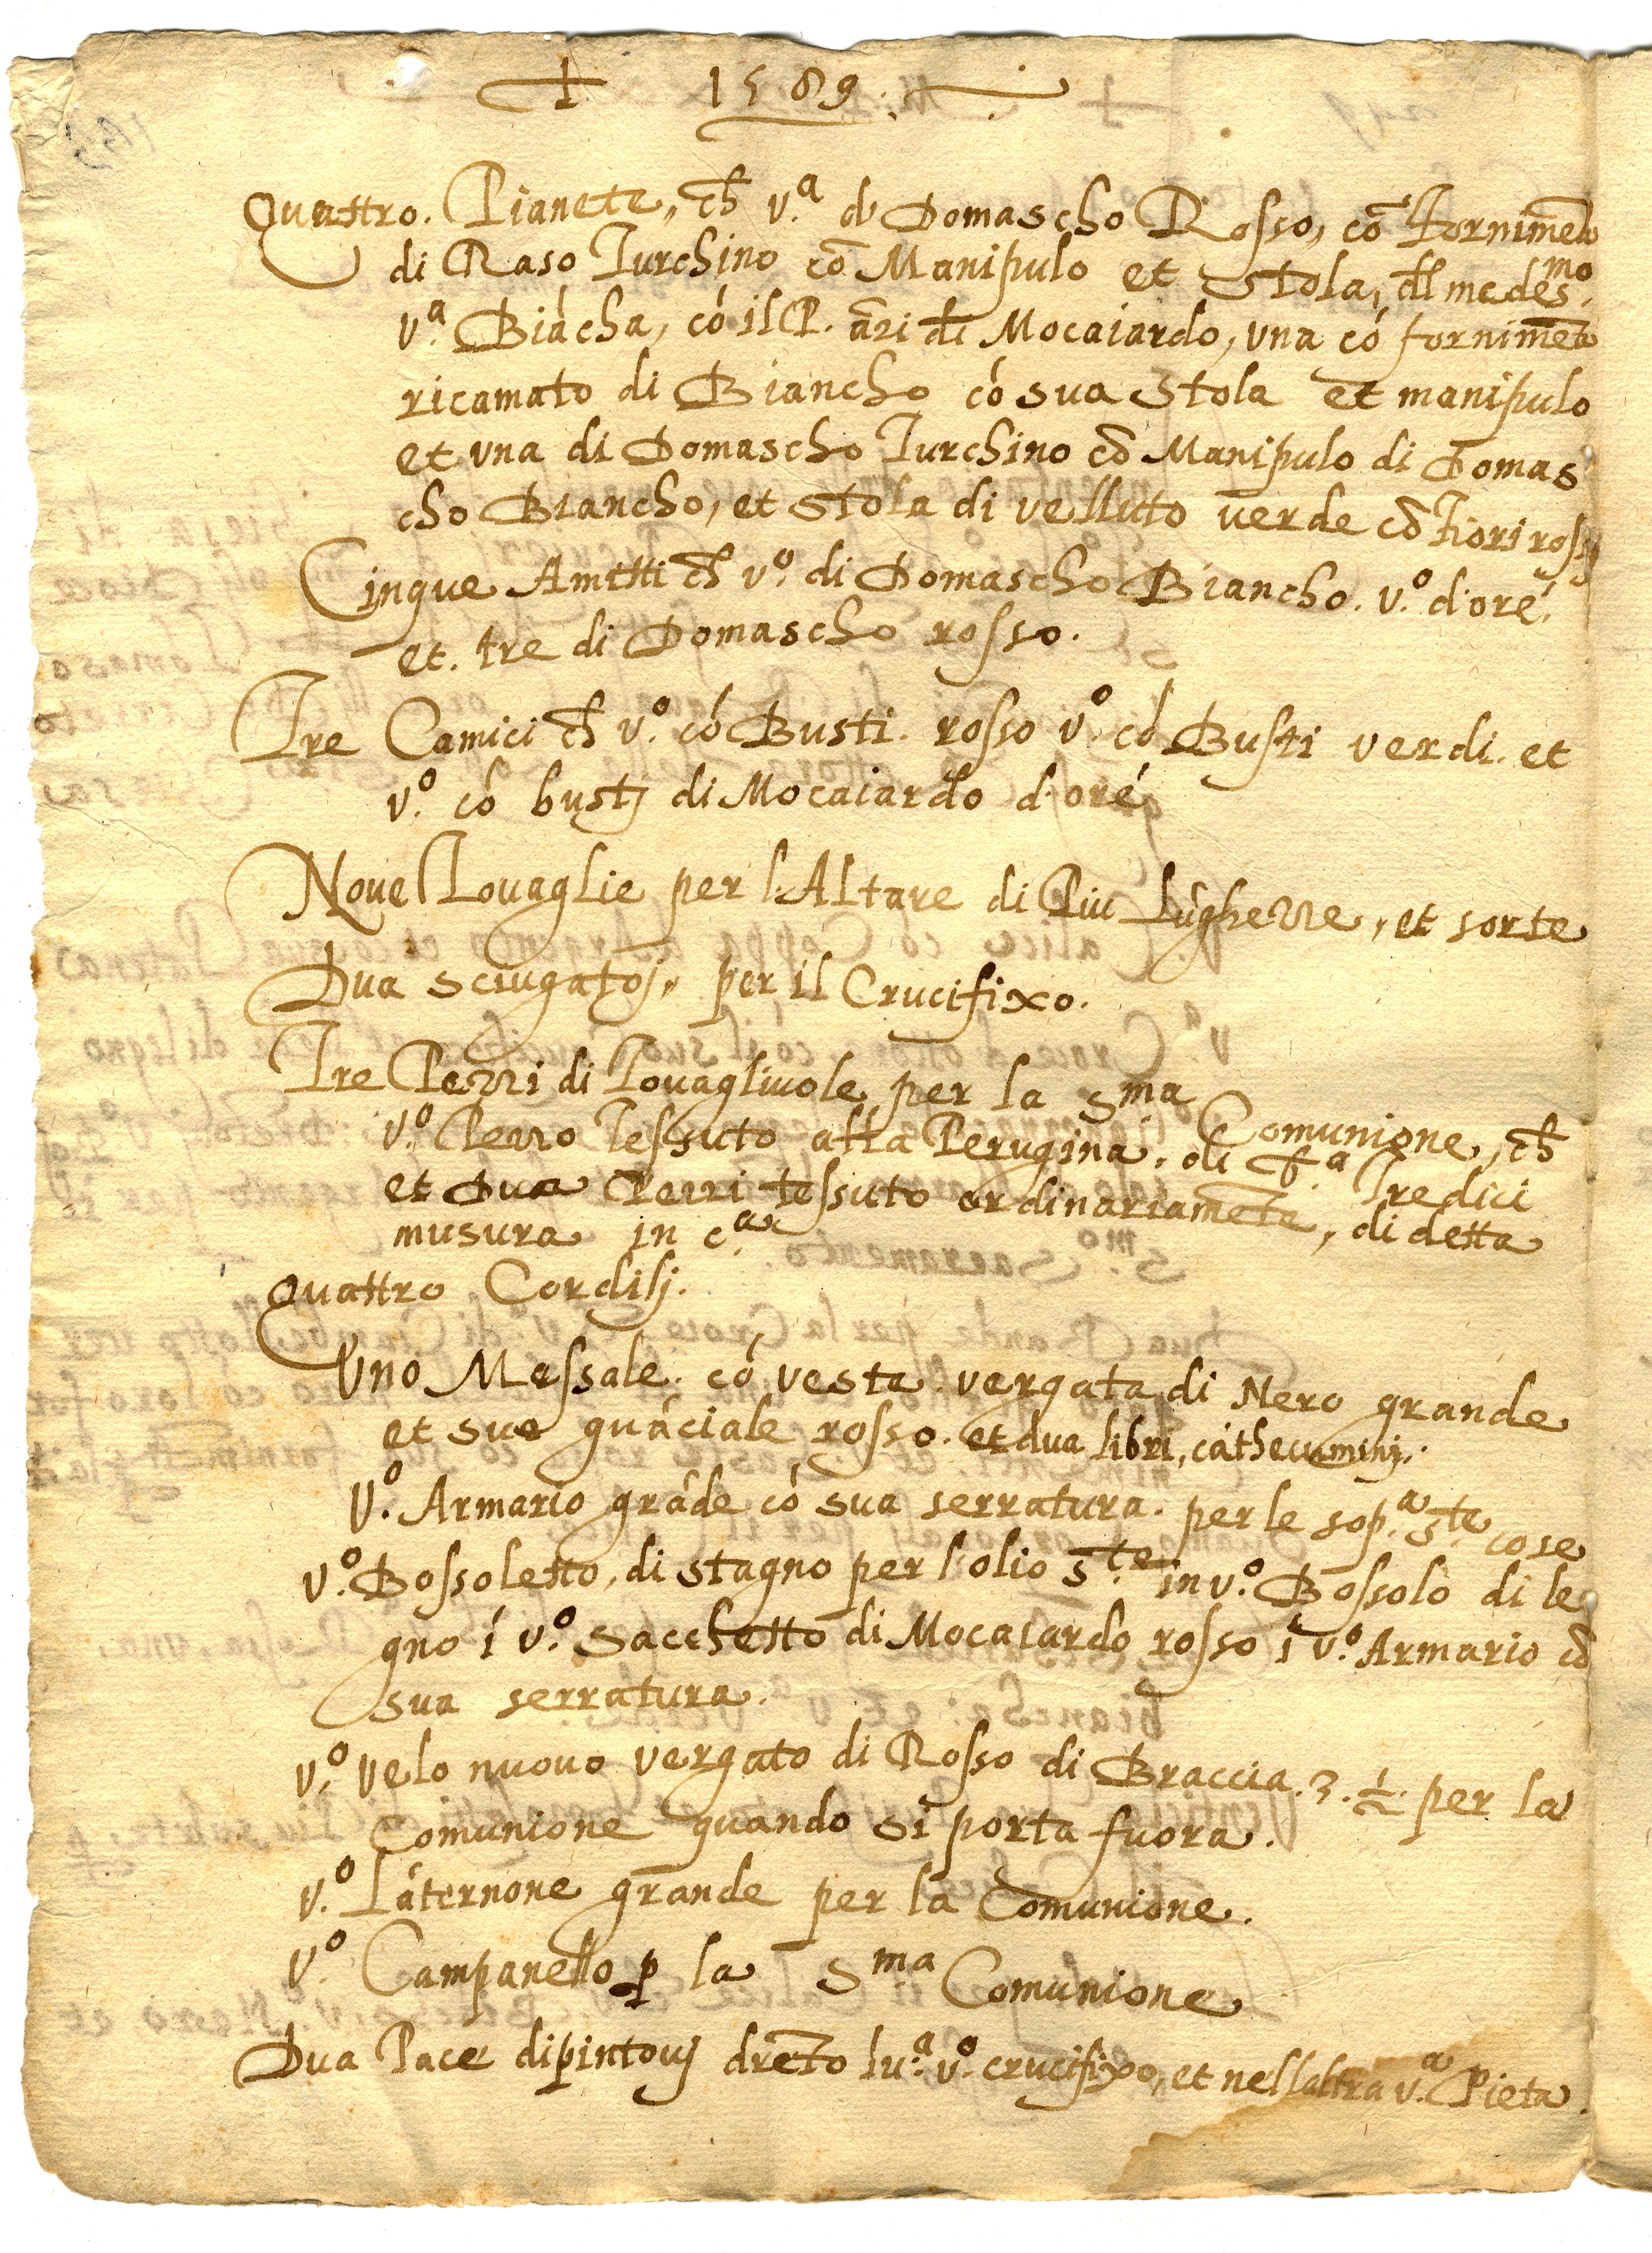 † 1589.
Quattro. Pianete, ch̄ v.ª d Domascho Rosso, cō Fornimēto
di Raso Turchino cō Manipulo et Stola, dl medes.mo
v.ª Biācha, có il P. āri di Mocaiardo, una có fornimēto
ricamato di Biancho có sua Stola et manipulo
et una di Domascho Turchino cō Manipulo di Domas
cho Biancho, et Stola di velluto verde cō Fiori rossi
Cinque Amitti ch̄ v.º di Domascho Biancho. v.º d'oré.
et. tre di Domascho rosso.
Tre Camici ch̄ v.º có Busti. rosso v.º có Busti verdi. et
v.º có bustj di Mocaiardo d'oré
Noue Touaglie per l'Altare di Piu Lúghezze, et sorte
Dua sciugatoj, per il Crucifixo.
Tre Pezzi di Touagliuole per la S.ma Comunione, ch̄
v.º Pezzo Tessuto alla Perugina. di b.ª Tredici
et Dua Pezzi tessuto ordinariamēte, di detta
musura in c.ª
Quattro Cordilj.
Uno Messale. có vesta vergata di Nero grande
et suo guáciale rosso. et dua libri, cáthecuminj.
V.º Armario gráde có sua serratura. per le sop.ª S.te cose
v.º Bossoletto, di stagno per l'olio S.te in v.º Bossolo di le
gno í v.º Sacchetto di Mocaiardo rosso í v.º Armario cō
sua serratura.
v.º velo nuouo vergato di Rosso di Braccia .3. ½ per la
Comunione quando si porta fuora.
v.º Láternone grande per la Comunione.
v.º Campanello p̱ la S.ma Comunione
Dua Pace dipintouj drēto lu.ª v.º crucifixo, et nell'altra v.ª Pieta.